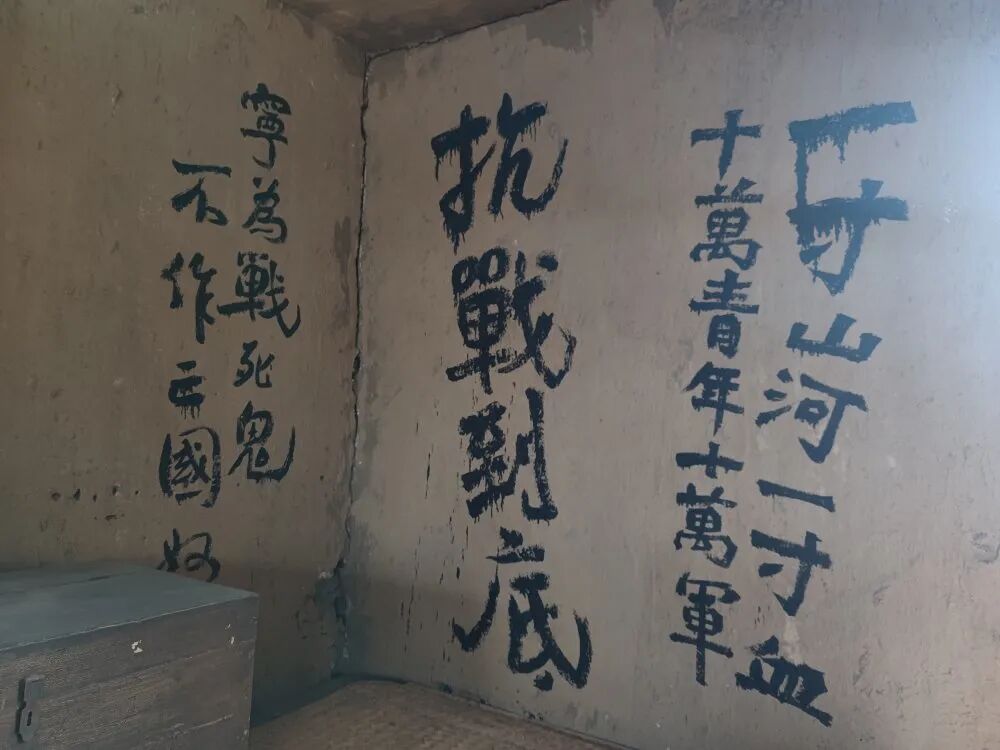 一寸山河一寸血
十萬青年十萬軍
抗戰到底
寧為戰死鬼
不作亡國奴